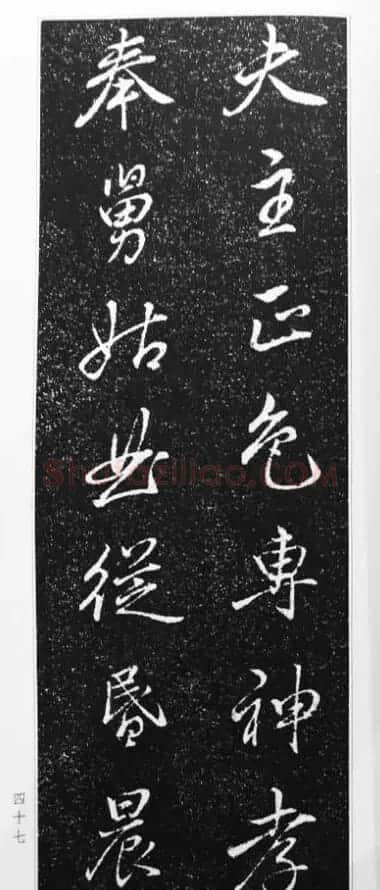 夫主正色專神孝
奉舅姑曲從昬晨
四十七
ShufaZiliao.COM